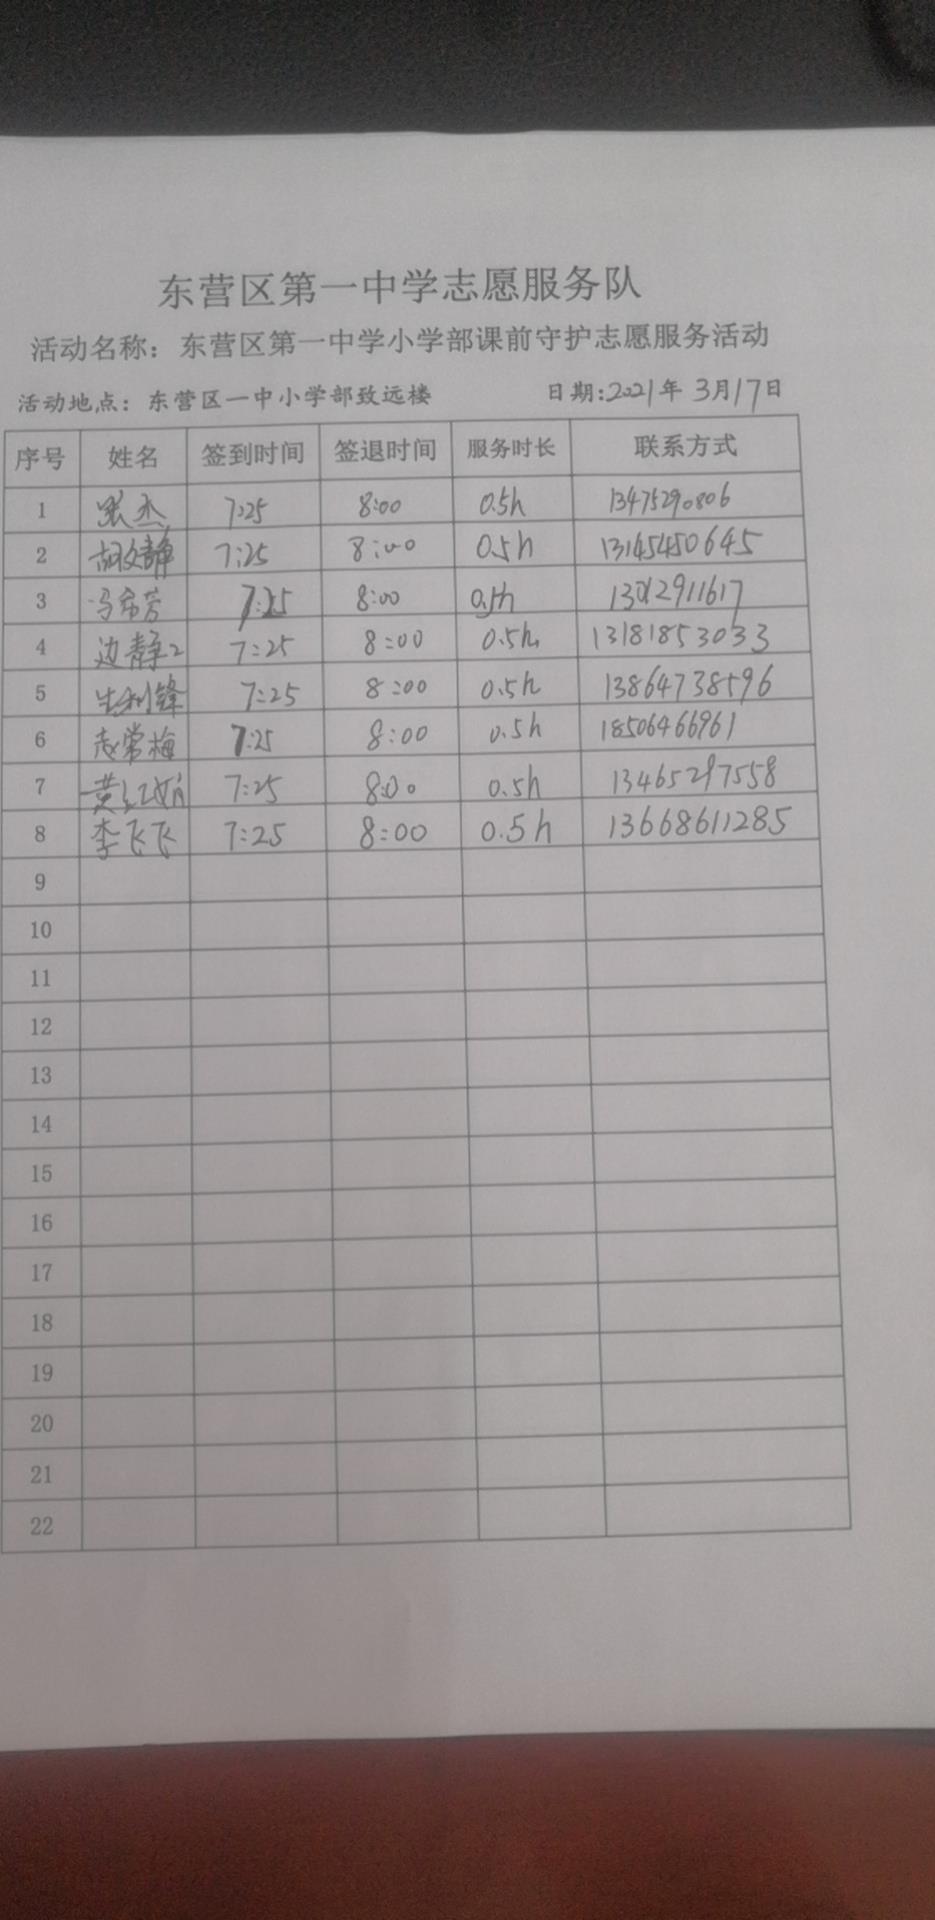 东营区第一中学志愿服务队
活动名称：东营区第一中学小学部课前守护志愿服务活动
活动地点：东营区一中小学部致远楼 日期：2021年 3月17日
序号 姓名 签到时间 签退时间 服务时长 联系方式
1 张杰 7:25 8:00 0.5h 13475290806
2 胡文静 7:25 8:00 0.5h 13145450645
3 冯希芳 7:25 8:00 0.5h
4 边静2 7:25 8:00 0.5h 13181853033
5 生利锋 7:25 8:00 0.5h 13864738596
6 赵常梅 7:25 8:00 0.5h 18506466961
7 黄红娟 7:25 8:00 0.5h 13465297558
8 李飞飞 7:25 8:00 0.5h 13668611285
9
10
11
12
13
14
15
16
17
18
19
20
21
22